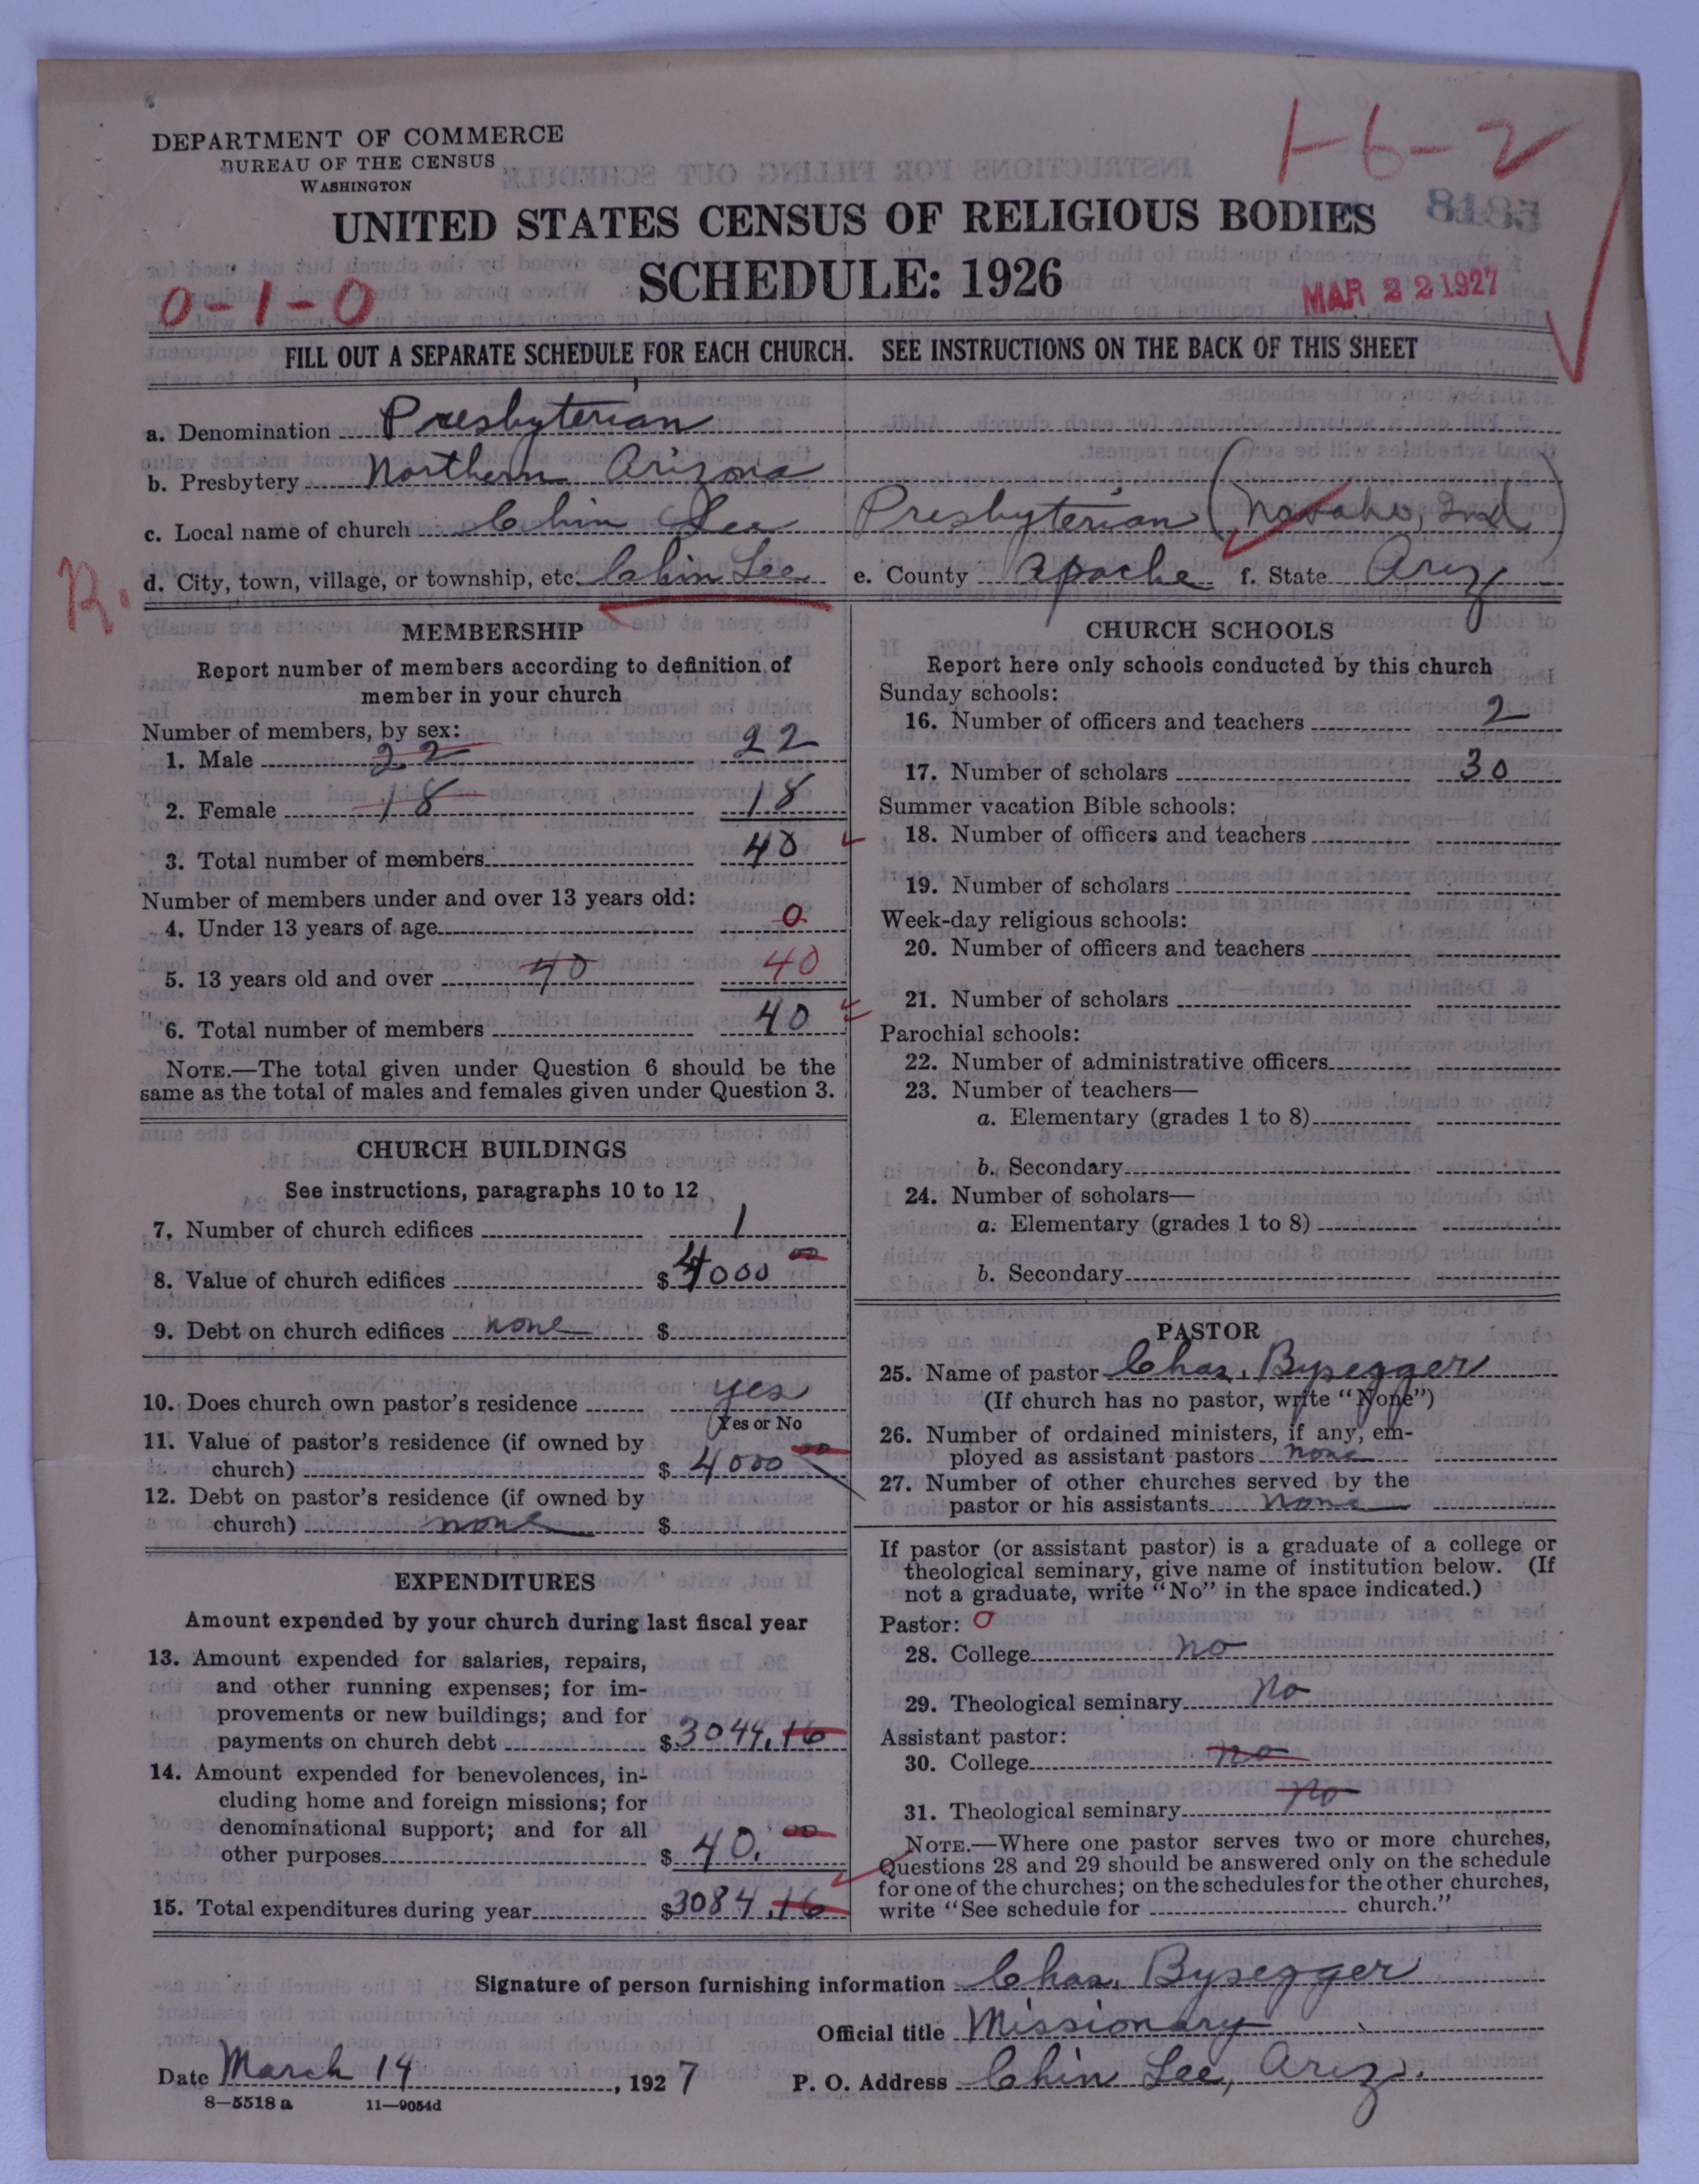 DEPARTMENT OF COMMERCE
BUREAU OF THE CENSUS
WASHINGTON
1-6-2
8185
UNITED STATES CENSUS OF RELIGIOUS BODIES
SCHEDULE: 1926
0-1-0
MAR 22 1927
FILL OUT A SEPARATE SCHEDULE FOR EACH CHURCH. SEE INSTRUCTIONS ON THE BACK OF THIS SHEET
a. Denomination Presbyterian
b. Presbytery Northern Arizona
c. Local name of church Chin Lee Presbyterian (Navaho, 2nd)
R. d. City, town, village, or township, etc. Chin Lee e. County Apache f. State Ariz
MEMBERSHIP
Report number of members according to definition of
member in your church
Number of members, by sex:
1. Male 22 22
2. Female 18 18
3. Total number of members 40
Number of members under and over 13 years old:
4. Under 13 years of age 0
5. 13 years old and over 40 40
6. Total number of members 40
NOTE.—The total given under Question 6 should be the
same as the total of males and females given under Question 3.
CHURCH BUILDINGS
See instructions, paragraphs 10 to 12
7. Number of church edifices 1
8. Value of church edifices $ 4000 00
9. Debt on church edifices none $
10. Does church own pastor's residence yes
Yes or No
11. Value of pastor's residence (if owned by
church) $ 4000 00
12. Debt on pastor's residence (if owned by
church) none $
EXPENDITURES
Amount expended by your church during last fiscal year
13. Amount expended for salaries, repairs,
and other running expenses; for im-
provements or new buildings; and for
payments on church debt $ 3044.16
14. Amount expended for benevolences, in-
cluding home and foreign missions; for
denominational support; and for all
other purposes $ 40. 00
15. Total expenditures during year $ 3084.16
CHURCH SCHOOLS
Report here only schools conducted by this church
Sunday schools:
16. Number of officers and teachers 2
17. Number of scholars 30
Summer vacation Bible schools:
18. Number of officers and teachers
19. Number of scholars
Week-day religious schools:
20. Number of officers and teachers
21. Number of scholars
Parochial schools:
22. Number of administrative officers
23. Number of teachers—
a. Elementary (grades 1 to 8)
b. Secondary
24. Number of scholars—
a. Elementary (grades 1 to 8)
b. Secondary
PASTOR
25. Name of pastor Chas. Bysegger
(If church has no pastor, write "None")
26. Number of ordained ministers, if any, em-
ployed as assistant pastors none
27. Number of other churches served by the
pastor or his assistants none
If pastor (or assistant pastor) is a graduate of a college or
theological seminary, give name of institution below. (If
not a graduate, write "No" in the space indicated.)
Pastor: 0
28. College no
29. Theological seminary no
Assistant pastor:
30. College no
31. Theological seminary no
NOTE.—Where one pastor serves two or more churches,
Questions 28 and 29 should be answered only on the schedule
for one of the churches; on the schedules for the other churches,
write "See schedule for church."
Signature of person furnishing information Chas. Bysegger
Official title Missionary
Date March 14, 1927 P. O. Address Chin Lee, Ariz.
8—5518 a 11—9054d